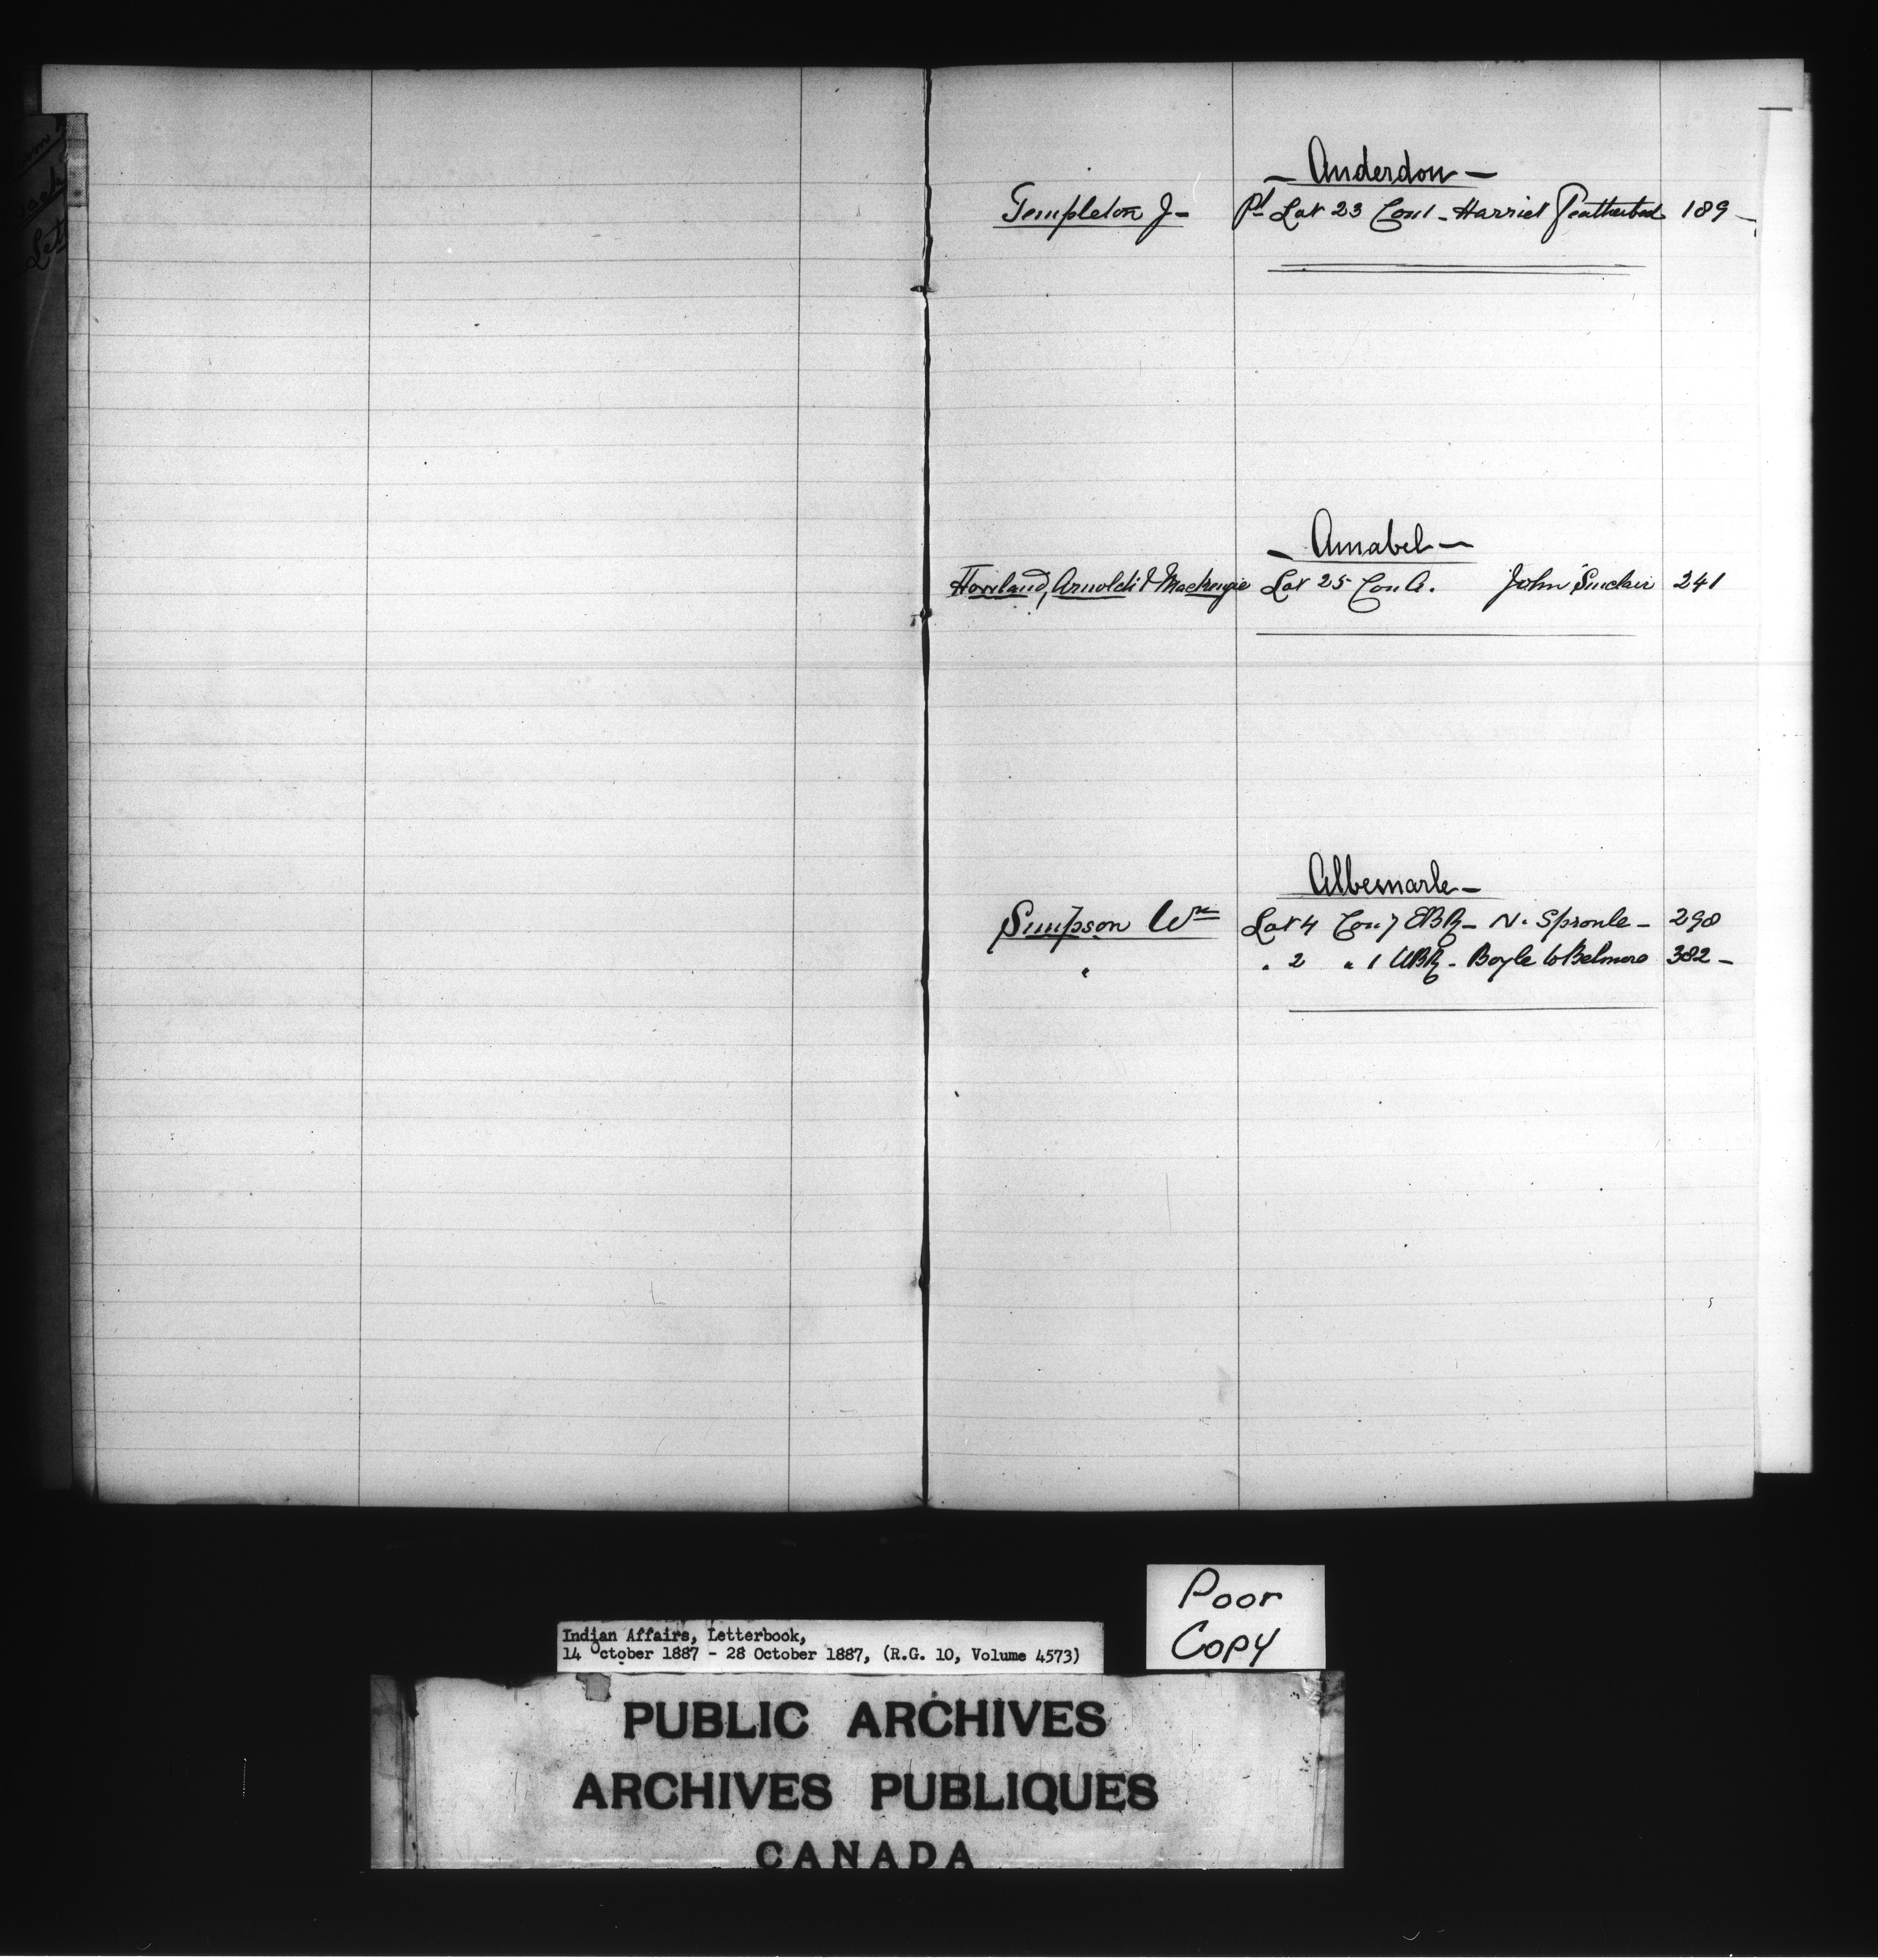 - Anderdon -
Templeton J- Pt Lot 23 Con 1 - Harriet Featherbed 189 -
- Amabel -
Howland, Arnoldi & Mackenzie Lot 25 Con A. John Sinclair 241
Albemarle -
Simpson Wm Lot 4 Con 7 EBR - N. Sproule - 290
" " 2 " 1 WBR - Boyle to Belmore 382 -
Poor
Copy
Indian Affairs, Letterbook,
14 October 1887 - 28 October 1887, (R.G. 10, Volume 4573)
PUBLIC ARCHIVES
ARCHIVES PUBLIQUES
CANADA